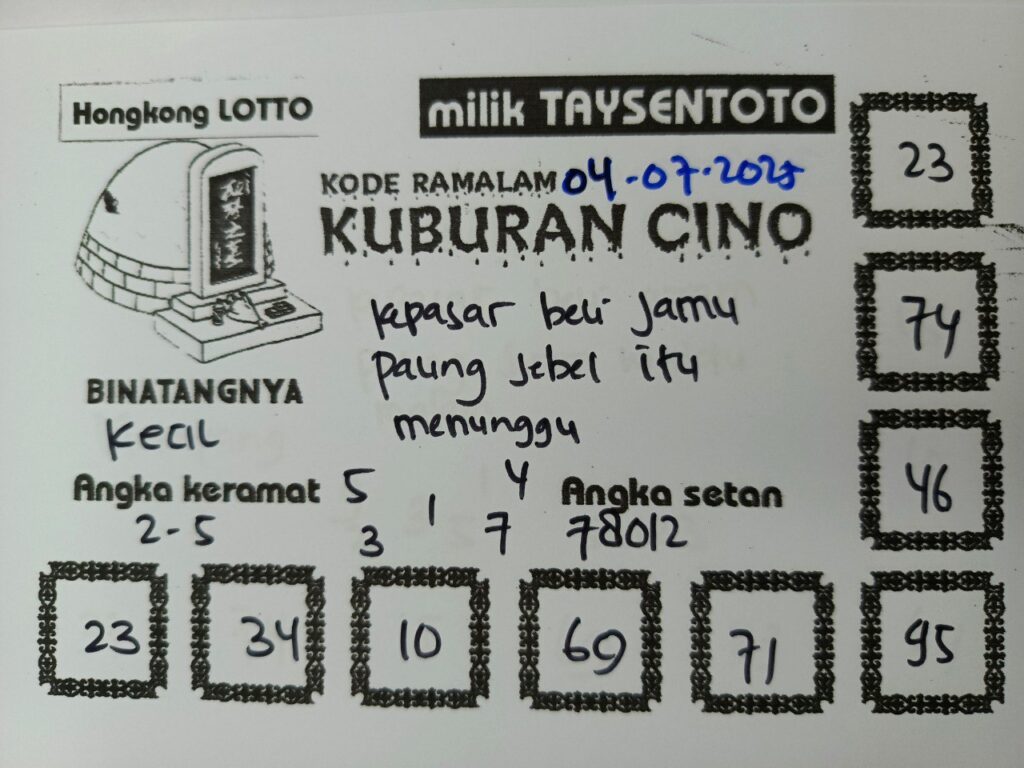 Hongkong LOTTO
milik TAYSENTOTO
KODE RAMALAM 04-07-2025
KUBURAN CINO
kepasar beli Jamu
paung jebel itu
menunggu
BINATANGNYA
Kecil
Angka keramat
2-5
5 4
1
3 7
Angka setan
78012
23
74
46
23 34 10 69 71 95